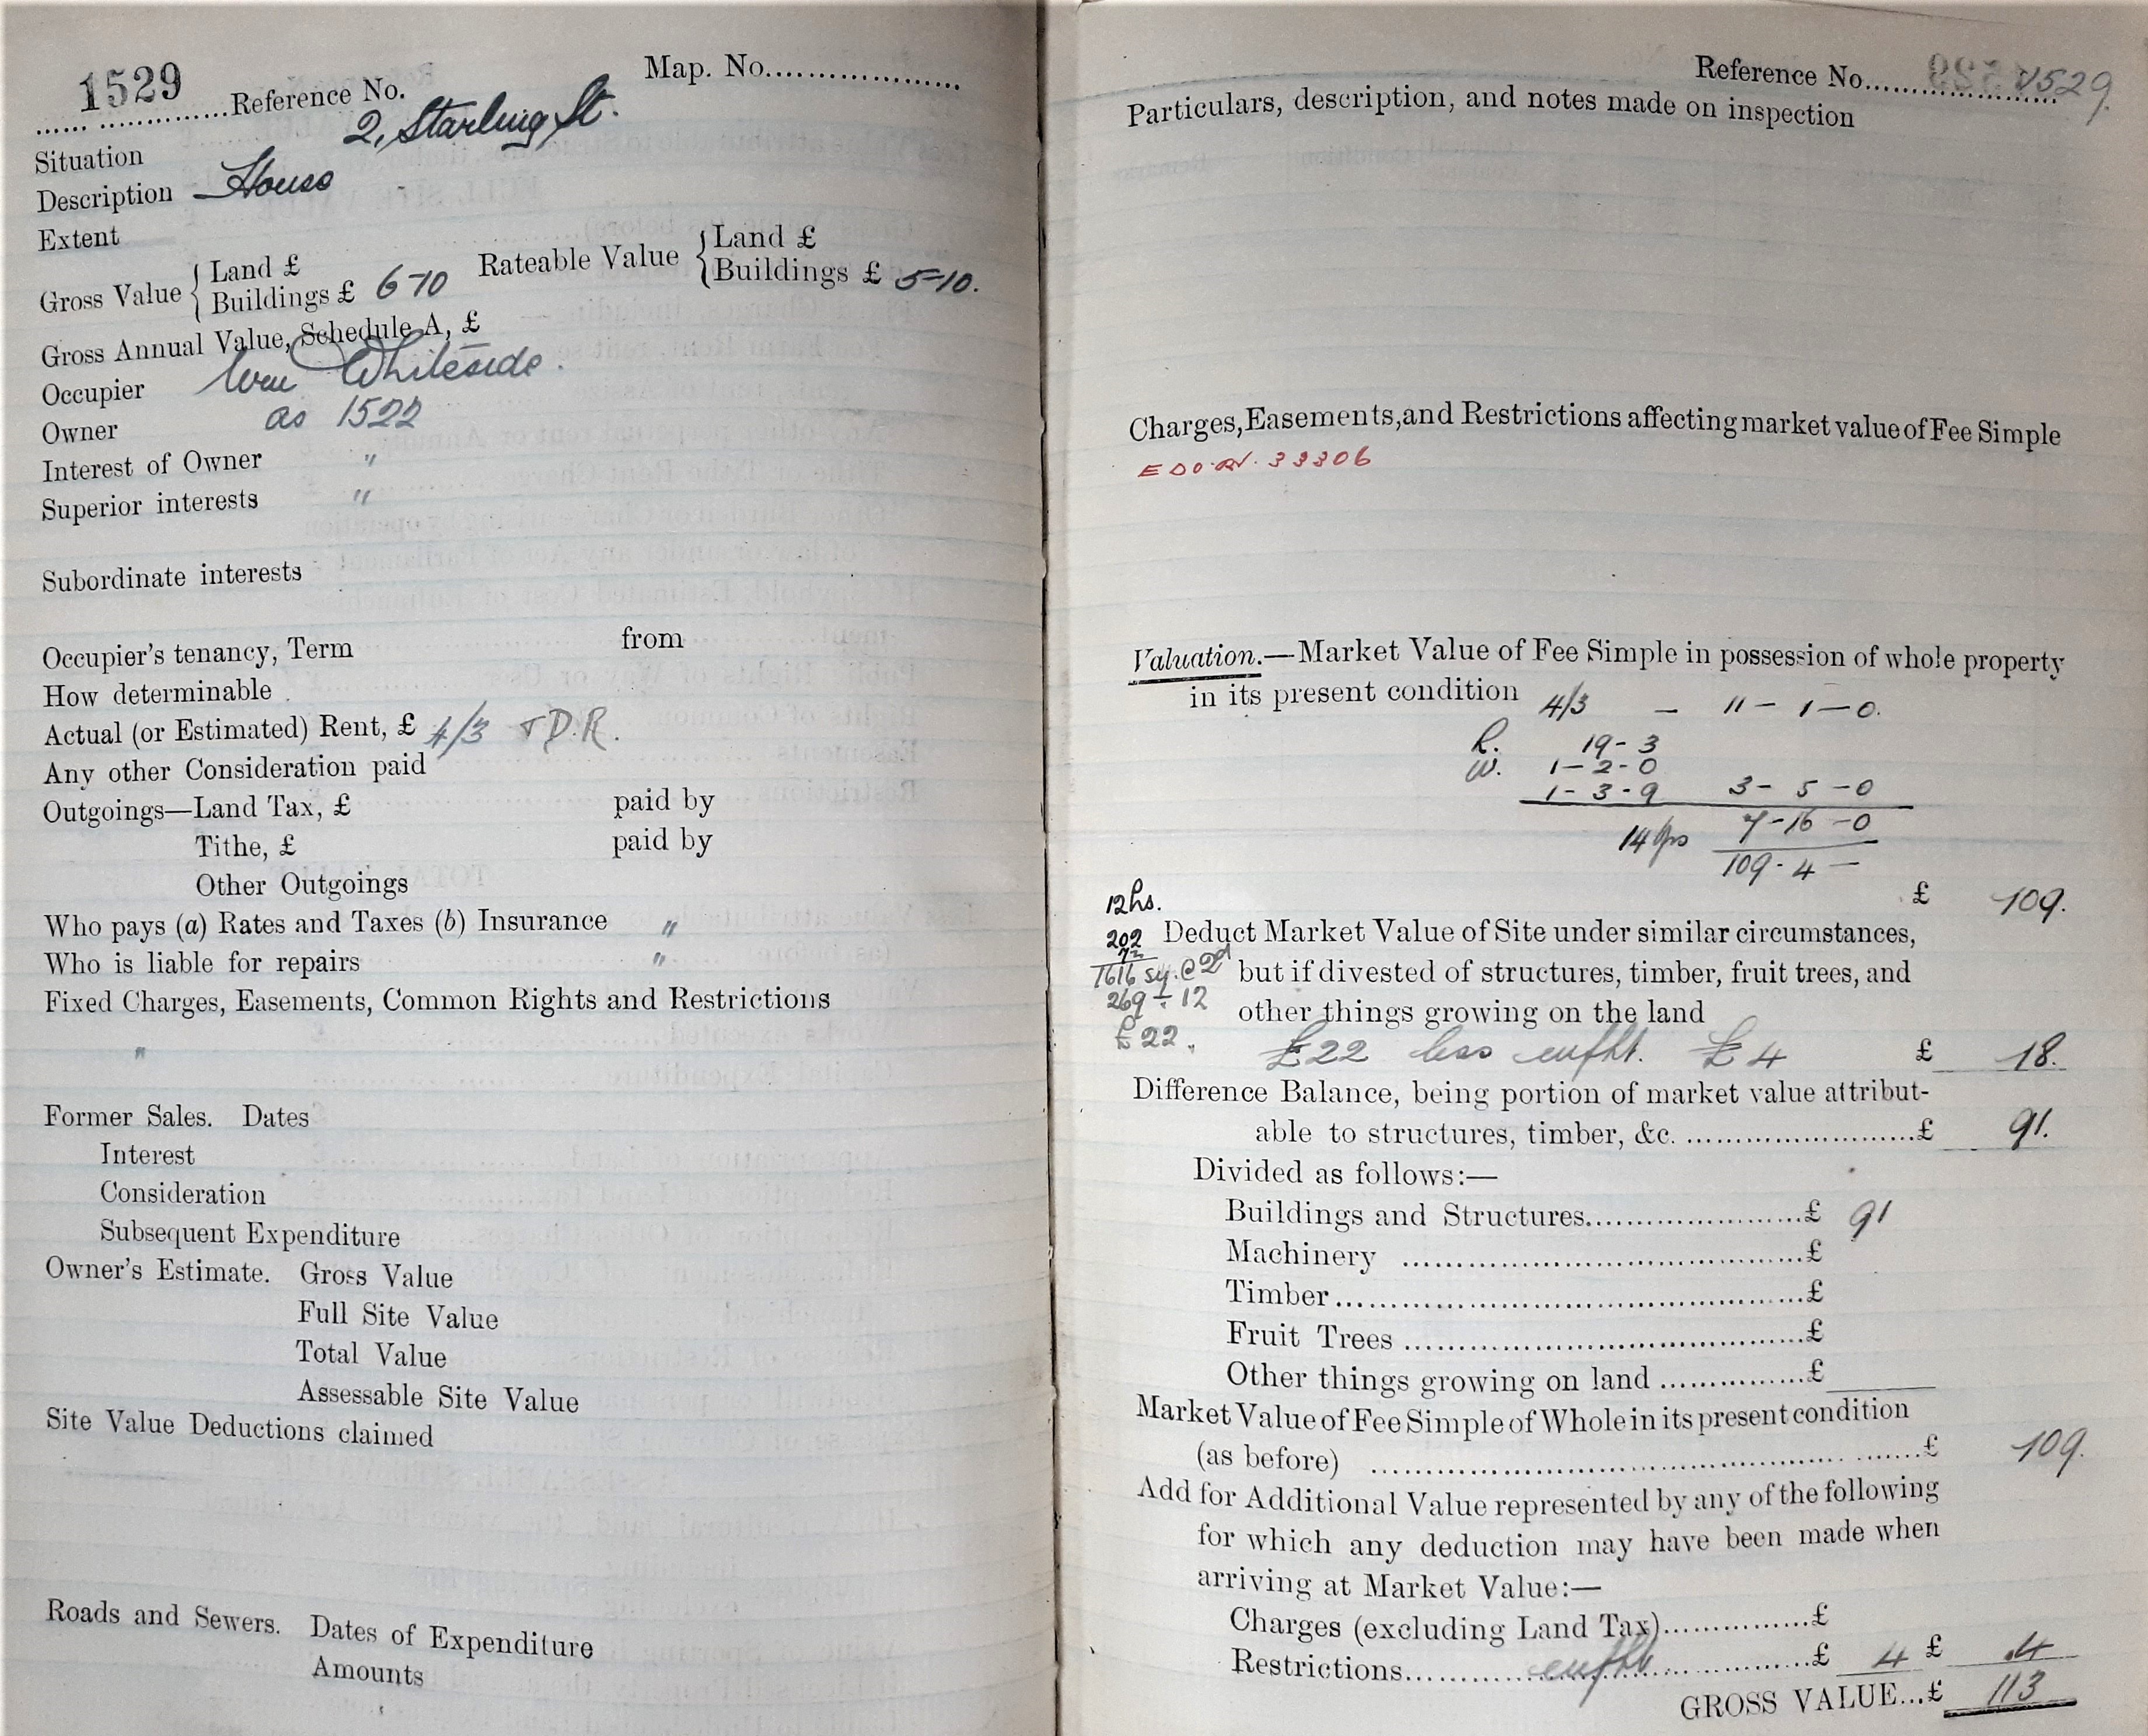 1529
Reference No.
Map. No.
Situation 2, Starling St.
Description House
Extent
Gross Value { Land £
Buildings £ 6-10
Rateable Value { Land £
Buildings £ 5-10.
Gross Annual Value, Schedule A, £
Occupier Wm Whiteside.
Owner as 1522
Interest of Owner "
Superior interests "
Subordinate interests
Occupier's tenancy, Term from
How determinable
Actual (or Estimated) Rent, £ 4/3 T D.R.
Any other Consideration paid
Outgoings—Land Tax, £ paid by
Tithe, £ paid by
Other Outgoings
Who pays (a) Rates and Taxes (b) Insurance "
Who is liable for repairs "
Fixed Charges, Easements, Common Rights and Restrictions
"
Former Sales. Dates
Interest
Consideration
Subsequent Expenditure
Owner's Estimate. Gross Value
Full Site Value
Total Value
Assessable Site Value
Site Value Deductions claimed
Roads and Sewers. Dates of Expenditure
Amounts
Reference No. 1529.
Particulars, description, and notes made on inspection
Charges, Easements, and Restrictions affecting market value of Fee Simple
33306
Valuation.—Market Value of Fee Simple in possession of whole property
in its present condition 4/3 — 11-1-0.
R. 19-3
W. 1-2-0
1-3-9 3-5-0
7-16-0
14 yps
109-4 —
£ 109.
12hs.
202 Deduct Market Value of Site under similar circumstances,
1616 sy. @ 2d but if divested of structures, timber, fruit trees, and
269 ÷ 12 other things growing on the land
£22. £22 less £4 £ 18.
Difference Balance, being portion of market value attribut-
able to structures, timber, &c. £ 91.
Divided as follows:—
Buildings and Structures £ 91
Machinery £
Timber £
Fruit Trees £
Other things growing on land £
Market Value of Fee Simple of Whole in its present condition
(as before) £ 109.
Add for Additional Value represented by any of the following
for which any deduction may have been made when
arriving at Market Value:—
Charges (excluding Land Tax) £
Restrictions £ 4 £ 4
GROSS VALUE...£ 113